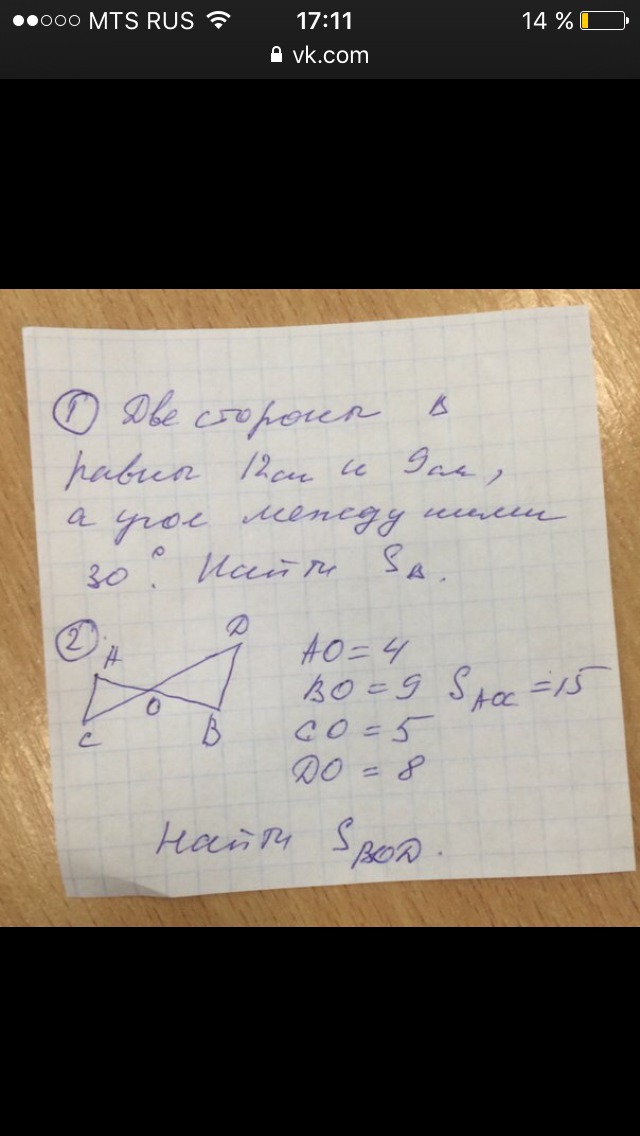 MTS RUS 17:11 14 %
vk.com
① Две стороны Δ
равны 12см и 9см,
а угол между ними
30°. Найти SΔ.
②
A D
O
C B
AO = 4
BO = 9 S AOC = 15
CO = 5
DO = 8
Найти S BOD.